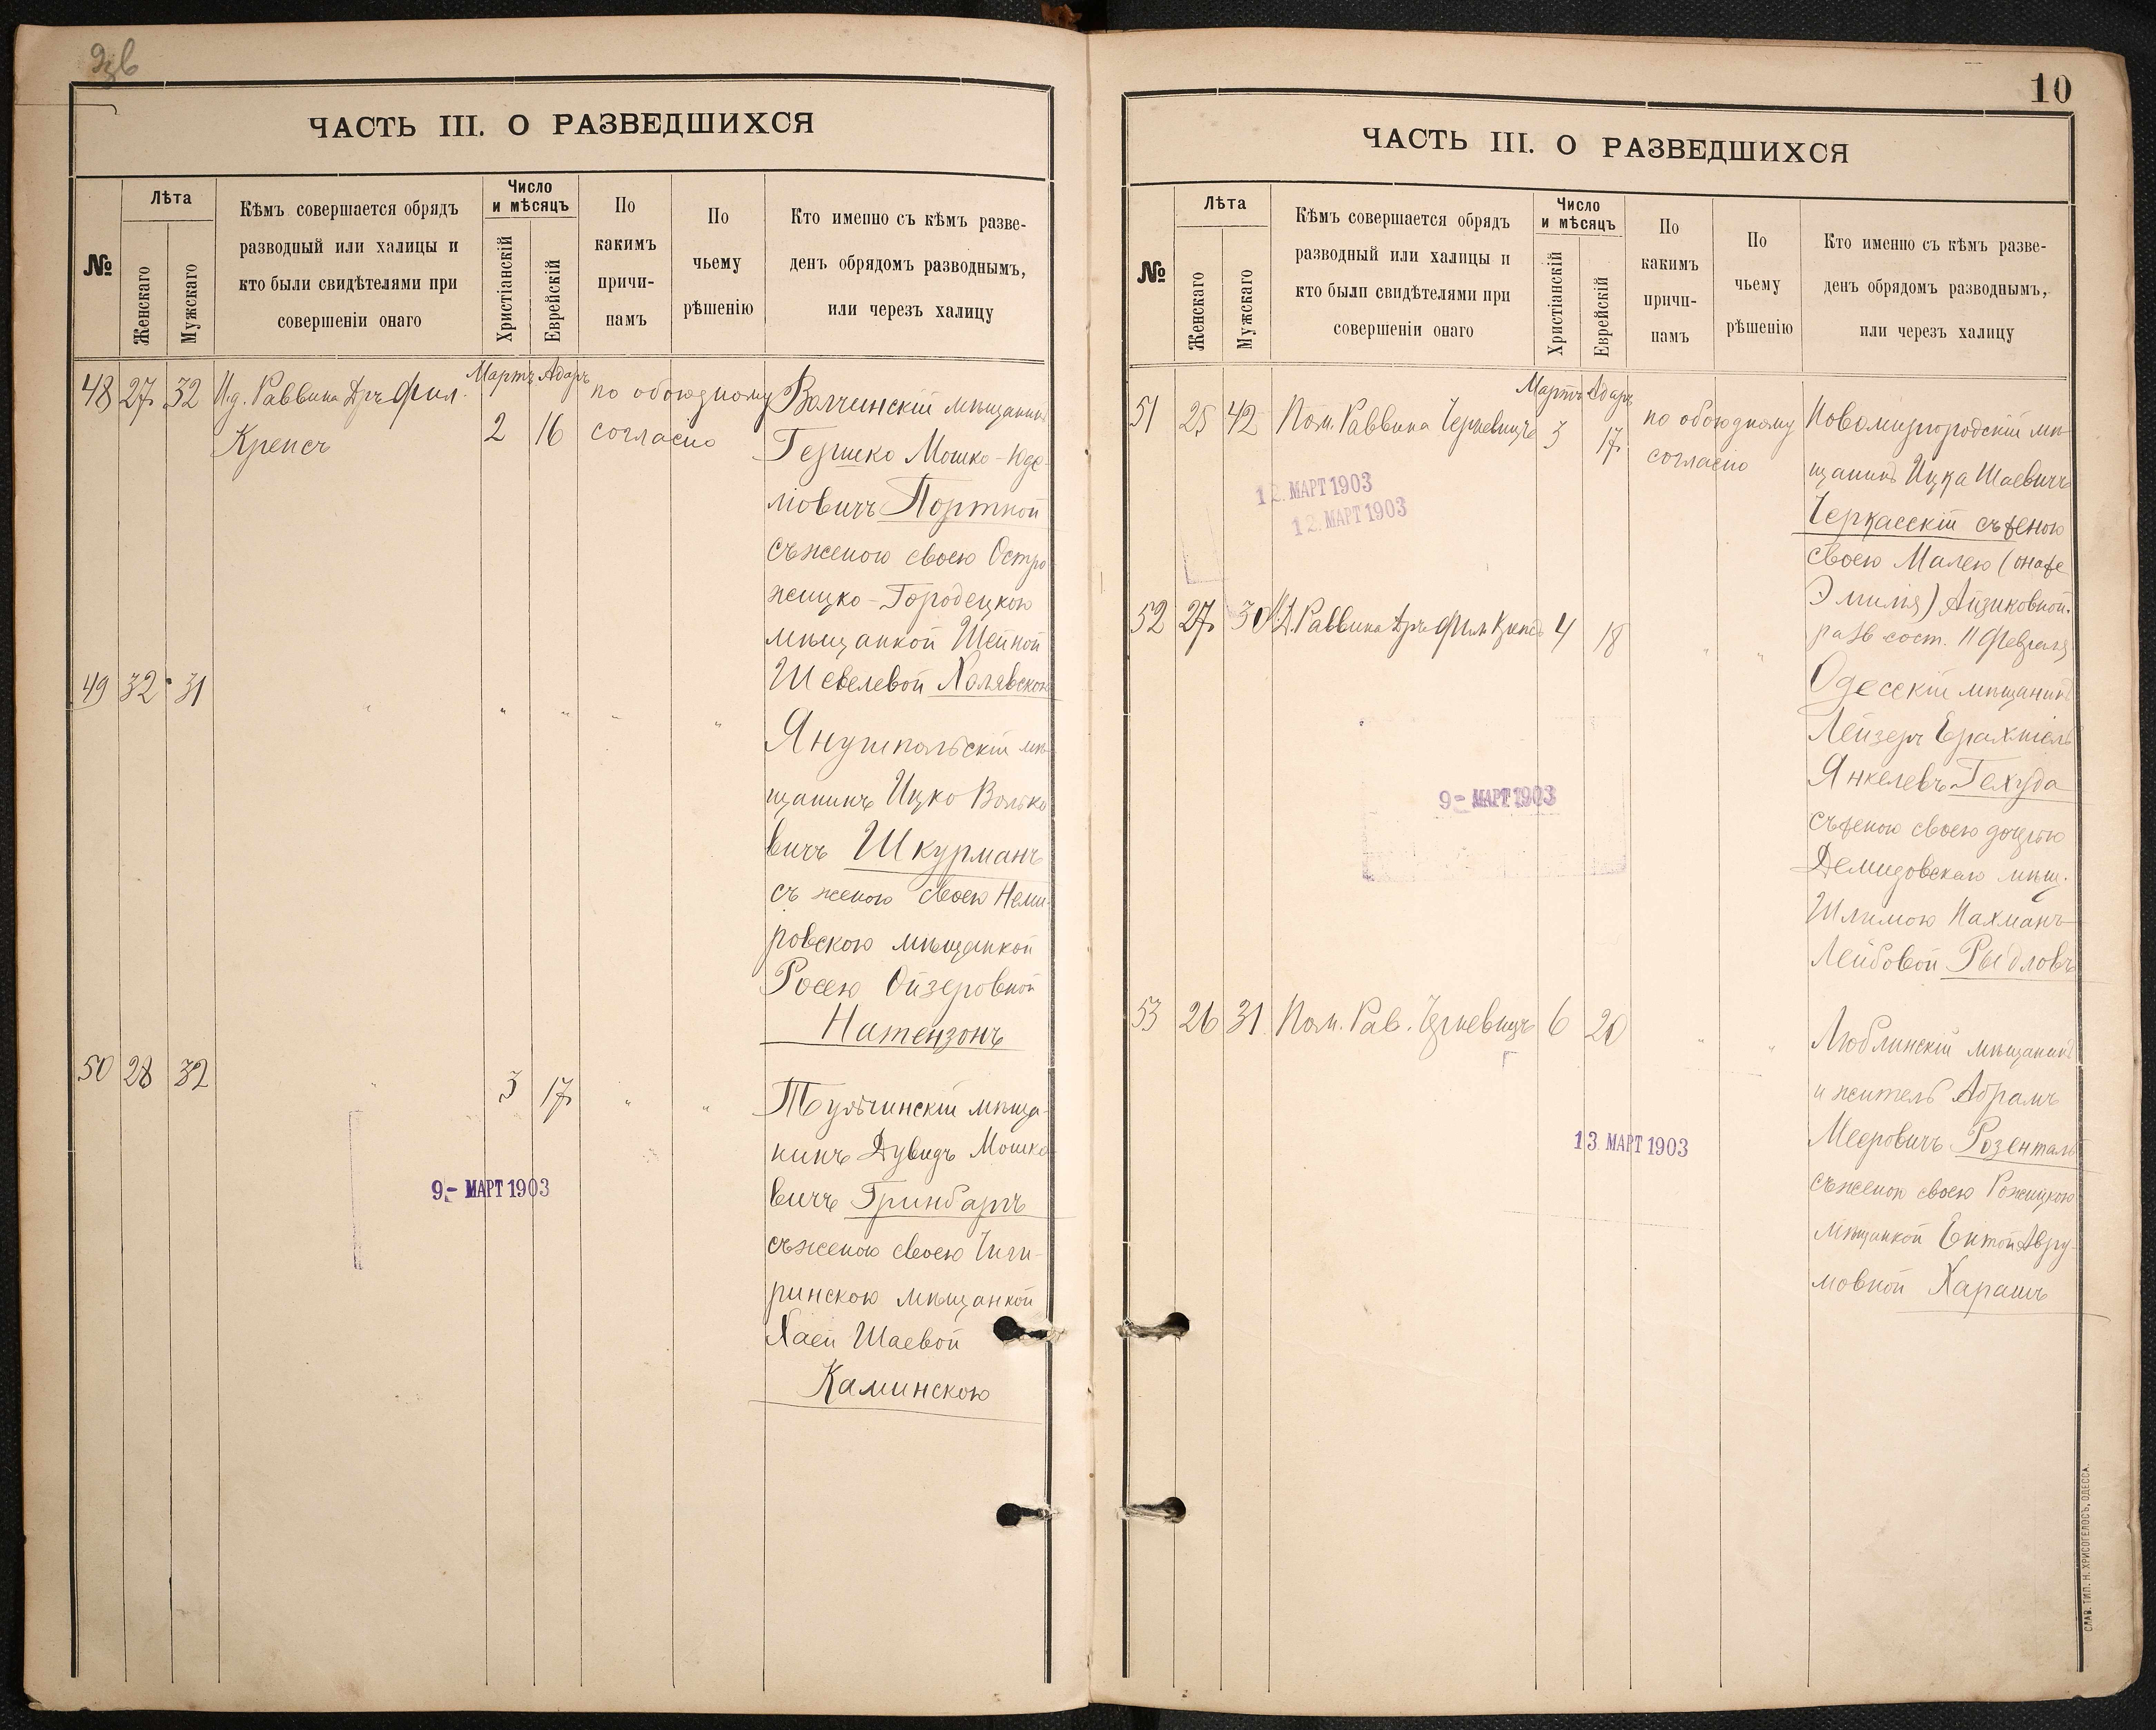 ЧАСТЬ III. О РАЗВЕДШИХСЯ
№
Лѣта
Женскаго
Мужскаго
Кѣмъ совершается обрядъ
разводный или халицы и
кто были свидѣтелями при
совершеніи онаго
Число
и мѣсяцъ
Христіанскій
Еврейскій
По
какимъ
причи-
намъ
По
чьему
рѣшенію
Кто именно съ кѣмъ разве-
денъ обрядомъ разводнымъ,
или черезъ халицу
48 27 32 И.д. Раввина Д-ръ Фил.
Крепсъ
Мартъ Адаръ
2 16
по обоюдному
согласію
Волчинскій мѣщанинъ
Гершко Мошко-Юдо-
Портной
съ женою своею Остро
жицко-Городецкою
мѣщанкой Шейной
Шевелевой Холявскою
49 32 31 " " " " "
Янушпольскій мѣ-
щанинъ Ицко Волько
вичъ Шкурманъ
съ женою своею Неми-
ровскою мѣщанкой
Росею Ойзеровной
Натензонъ
50 28 32 " 3 17 " "
Тульчинскій мѣща-
нинъ Дувидъ Мошко
вичъ Гринбаръ
съ женою своею Чиги-
ринскою мѣщанкой
Хаей Шаевой
Каминскою
9- МАРТ 1903
10
ЧАСТЬ III. О РАЗВЕДШИХСЯ
№
Лѣта
Женскаго
Мужскаго
Кѣмъ совершается обрядъ
разводный или халицы и
кто были свидѣтелями при
совершеніи онаго
Число
и мѣсяцъ
Христіанскій
Еврейскій
По
какимъ
причи-
намъ
По
чьему
рѣшенію
Кто именно съ кѣмъ разве-
денъ обрядомъ разводнымъ,
или черезъ халицу
51 25 42 Пом. Раввина
Мартъ Адаръ
3 17
по обоюдному
согласію
Новомиргородскій мѣ-
щанинъ Ицка Шаевичъ
Черкасскій съ женою
своею Малею (она же
Эмилія) Айзиковной.
разв. сост. 11 Февраля
12. МАРТ 1903
12. МАРТ 1903
52 27 30 И.д. Раввина Д-ръ Фил. Крепсъ 4 18 " "
Одесскій мѣщанинъ
Лейзеръ Ерахміель
Янкелевъ Гехуда
съ женою своею дочерью
Демидовскаго мѣщ.
Шлимою Нахманъ
Лейбовой Рыдловъ
9- МАРТ 1903
53 26 31 Пом. Рав. 6 20 " "
Люблинскій мѣщанинъ
и житель Абрамъ
Мееровичъ Розенталь
съ женою своею Рожицкою
мѣщанкой Ентой Авру-
мовной Харашъ
13 МАРТ 1903
СЛАВ. ТИП. Н. ХРИСОГЕЛОСЪ, ОДЕССА.